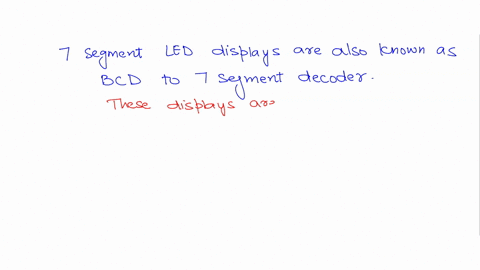 7 segment LED displays are also known as
BCD to 7 segment decoder.
These displays are